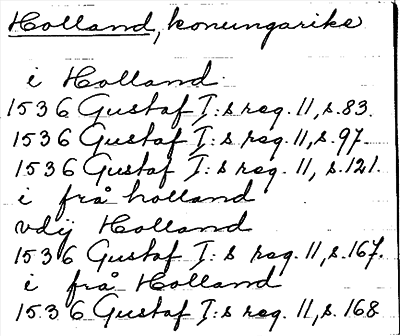 Holland, konungarike
i Holland.
1536 Gustaf I:s reg. 11, s. 83.
1536 Gustaf I:s reg. 11, s. 97.
1536 Gustaf I:s reg. 11, s. 121.
i frå holland
vdij Holland
1536 Gustaf I:s reg. 11, s. 167.
i frå Holland
1536 Gustaf I:s reg. 11, s. 168